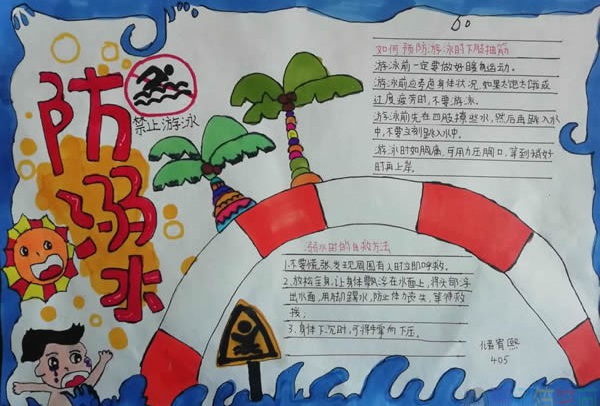 防溺水
禁止游泳
如何预防游泳时下肢抽筋
游泳前一定要做好暖身运动.
游泳前应考虑身体状况,如果太饱太饿或
过度疲劳时,不要游泳.
游泳前先在四肢撩些水,然后再跳入水
中,不要立刻跳入水中.
游泳时如胸痛,可用力压胸口,等到稍好
时再上岸.
溺水时的自救方法
1.不要慌张,发现周围有人时立即呼救.
2.放松全身,让身体飘浮在水面上,将头部浮
出水面,用脚踢水,防止体力丧失,等待救
援.
3.身体下沉时,可将手掌向下压.
405